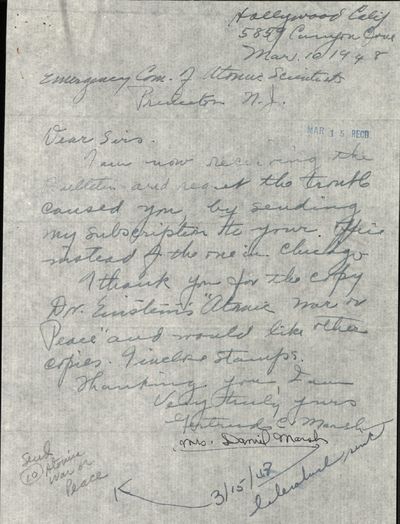 Hollywood Calif
5859 Canyon Cove
Mar. 10 1948
Emergency Com. of Atomic Scientists
Princeton N.J.
MAR 15 RECD
Dear Sirs.
I am now receiving the
Bulletin and regret the trouble
caused you, by sending
my subscription to your office
instead of the one in Chicago
I thank you for the copy
Dr. Einstein's "Atomic War or
Peace" and would like other
copies. I inclose stamps.
Thanking you, I am
Very truly yours
Gertrude C. Marsh
Mrs. Daniel Marsh
Send
10 Atomic
War or
Peace
3/15/48
literature sent